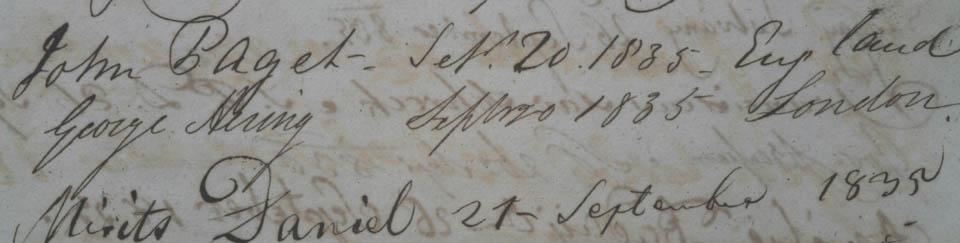 John Paget - Sept. 20. 1835 - England
George Hering Sept 20 1835 London.
Misits Daniel 21 - September 1835